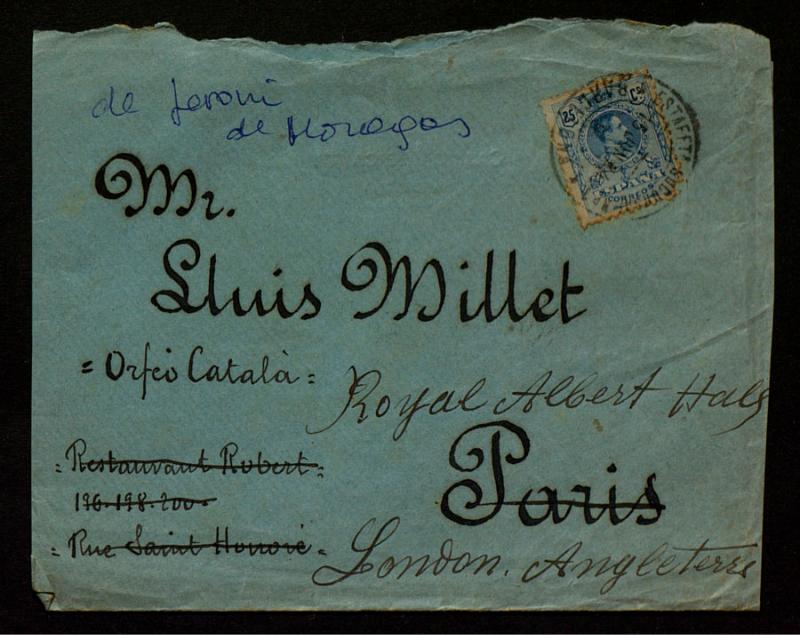 de Jeroni
de Moragas
25 Cs
ESPAÑA
CORREOS
Mr.
Lluis Millet
= Orfeó Català =
Royal Albert Hall
= Restaurant Robert =
196-198-200
Paris
= Rue Saint Honoré =
London. Angleterre